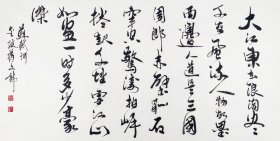 大江東去浪淘盡
千古風流人物故壘
西邊人道是三國
周郎赤壁亂石
穿空驚濤拍岸
捲起千堆雪江山
如畫一時多少豪
傑
蘇軾詞